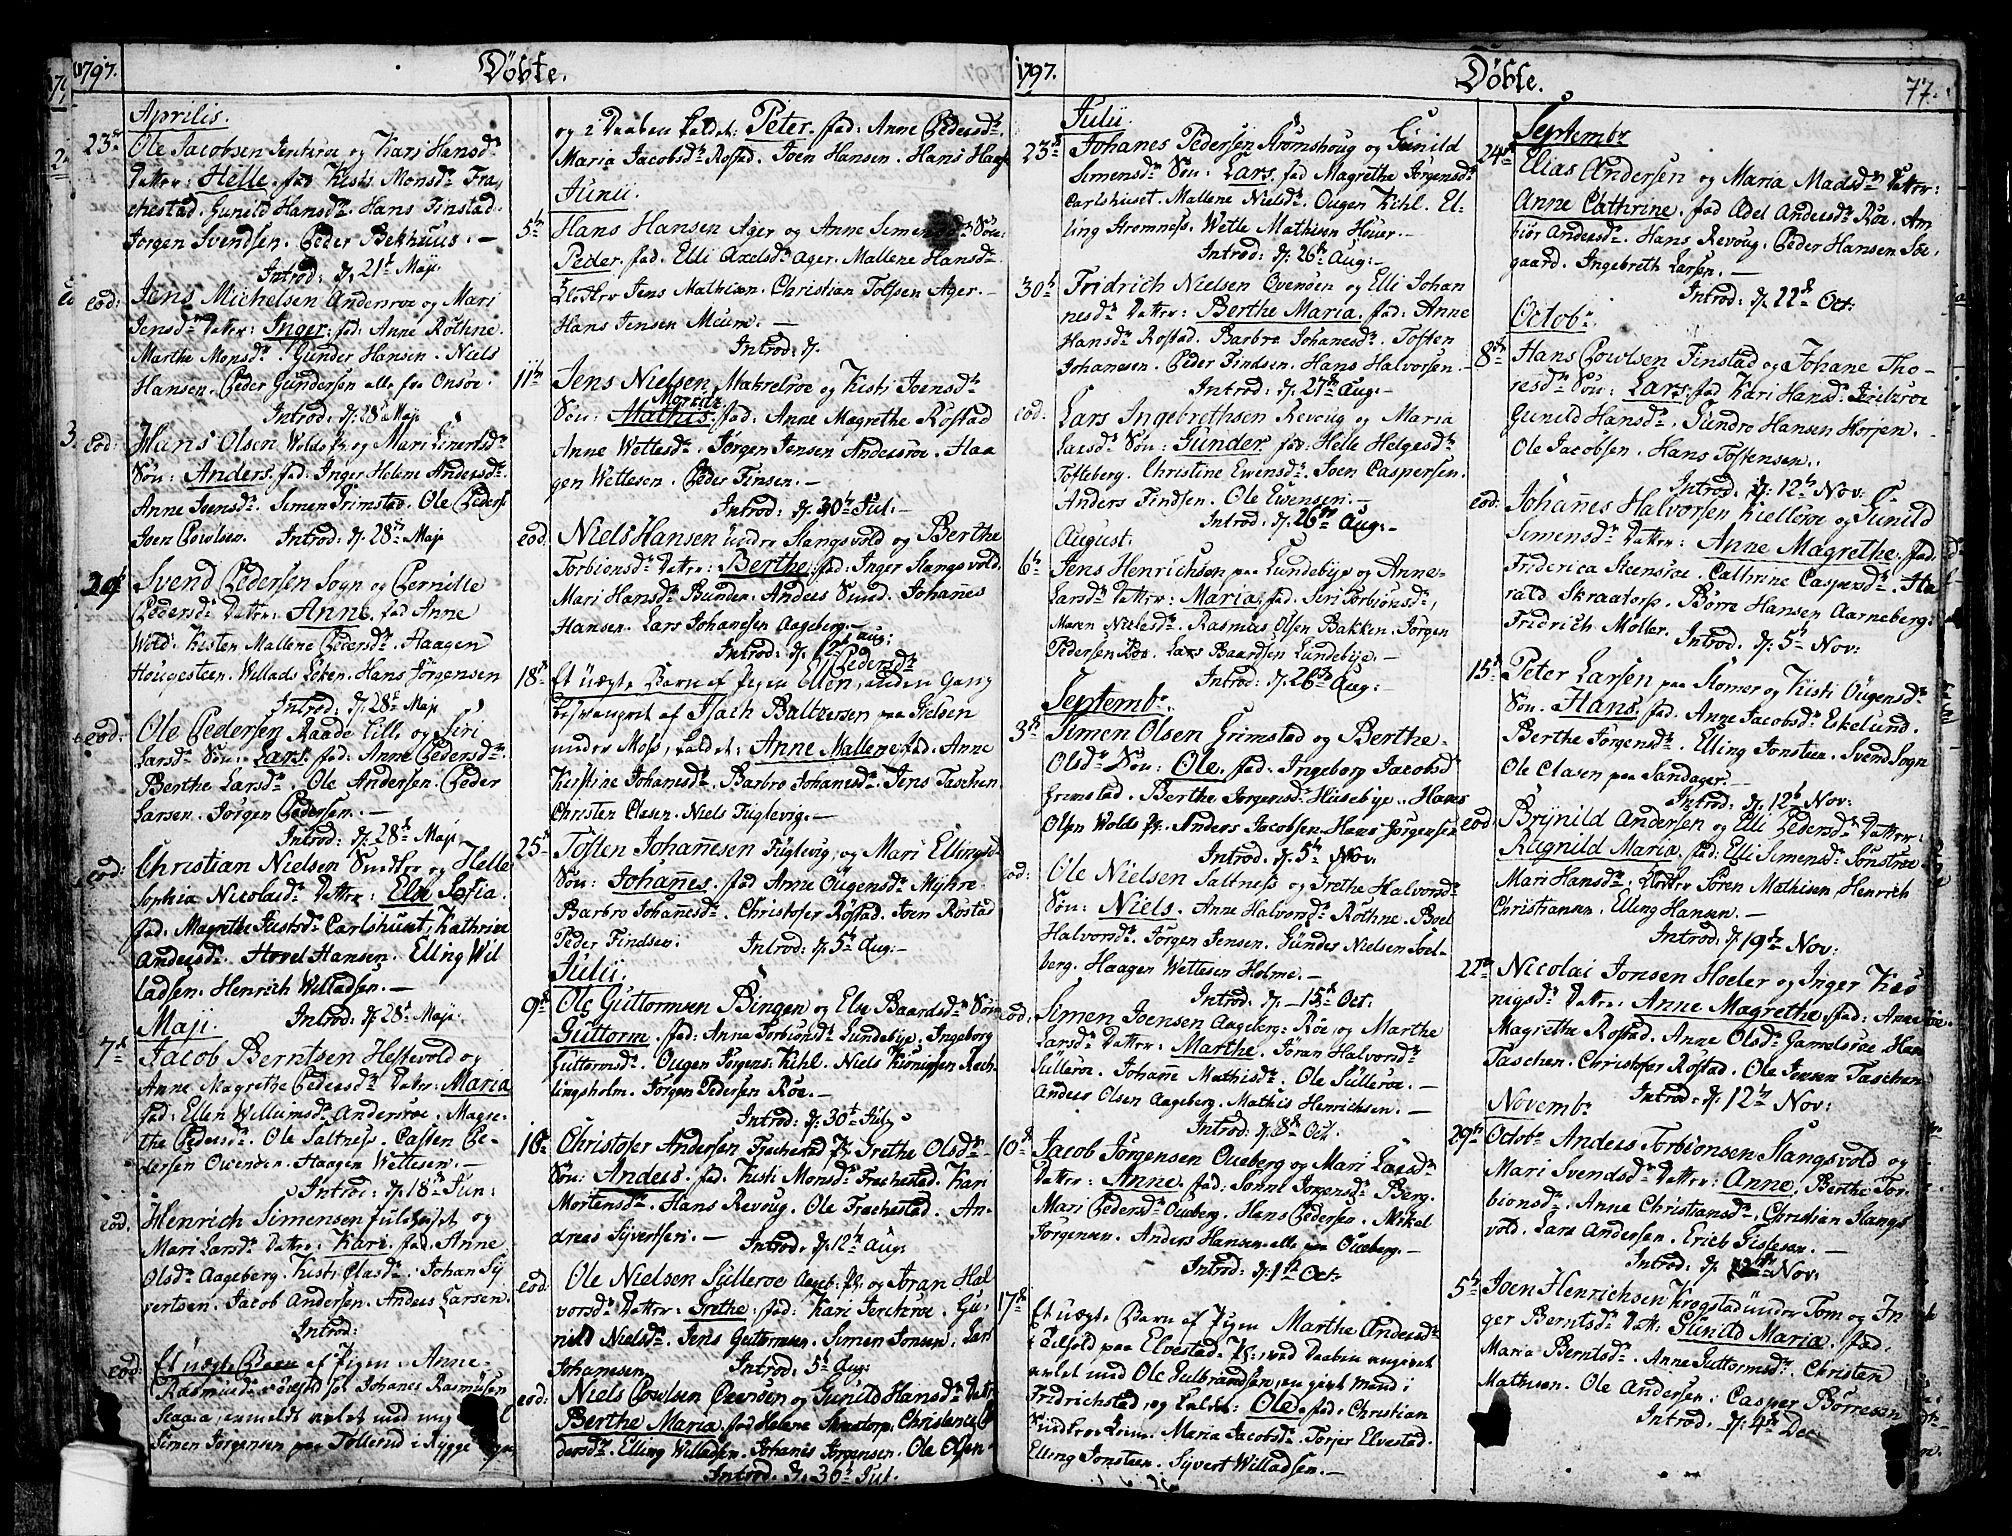 1797.
Döbte.
Aprilis.
23de Ole Jacobsen Jerchroe og Kari Hansdr
Datter: Helle. fad. Kisti Monsdr Fra-
chestad. Gunild Hansdr. Hans Finstad.
Jörgen Svendsen. Peder Bekhuus. —
Introd: d. 21de Maji.
eod: Jens Michelsen Andersroe og Mari
Jensdr Datter: Inger. fad: Anne Röthne.
Marthe Monsdr. Gunder Hansen. Niels
Hansen. Peder Gundersen alle fra Onsöe.
Introd: d. 28de Maji
eod: Hans Olsen Wolds og Mari Einertsdr
Sön: Anders. fad. Inger Helene Andersdr.
Anne Ivensdr. Simen Grimstad. Ole Peders
Iven Povlsen. Introd: d. 28de Maji
Svend Pedersen Sogn og Pernille
Pedersdr Datter: Anne. fad. Anne
Wold. Kisten Mallene Pedersdr. Haagen
Hougesteen. Willads Eken. Hans Jörgensen
Introd: d. 28de Maji
eod: Ole Pedersen Raade Lille og Siri
Larsdr Sön: Lars. fad. Anne Pedersdr.
Berthe Larsdr. Ole Andersen. Peder
Larsen. Jörgen Pedersen. —
Introd: d. 28de Maji
eod: Christian Nielsen Sundbye og Helle
Sophia Nicolaidr Datter: Else Sofia.
fad. Magrethe Justsdr Carlshuset, Kathrine
Andersdr. Hovel Hansen. Elling Wil
ladsen. Henrich Willadsen. —
Maji. Introd: d. 28de Maji.
7de Jacob Berntsen Hestevold og
Anne Magrethe Pedersdr Datter: Maria
fad: Ellen Willumsdr Andersroe. Magre-
the Pedersdr. Ole Saltness. Casten Pe-
dersen Ovenöen. Haagen Wettesen. —
Introd: d. 18de Jun:
eod. Henrich Simensen og
Mari Larsdr Datter: Kari. fad. Anne
Olsdr Aageberg. Kisti Olasdr. Johan Sy
vertsen. Jacob Andersen. Anders Larsen.
Introd:
eod: Et uægte Barn af Pigen Anne
Rasmusdr Johanes Rasmusen
Simen Jörgensen paa Tollerud i Rygge
og i Daaben kaldet: Peter. fad: Anne Pedersdr.
Maria Jacobsdr Rostad. Joen Hansen. Hans Haag
Junii.
5te Hans Hansen Ager og Anne Simensdr Sön:
Peder. fad. Elli Axelsdr Ager. Mallene Hansdr
Jens Mathisen. Christian Tolfsen Ager. —
Hans Jensen Meum. —
Introd: d.
11te Jens Nielsen Makrelroe og Kisti Joensdr
Sön: Mathis. fad: Anne Magrethe Röstad
Anne Wettesdr. Jörgen Jensen Andersroe. Haa
gen Wettesen. Peder Finsen. —
Introd: d. 30te Jul: —
eod. Niels Hansen under Slangsvold og Berthe
Torbionsdr Datter: Berthe. fad: Inger Slangsvold.
Mari Hansdr Bunden. Anders Sund. Johanes
Hansen. Lars Johanesen Aageberg. —
Introd: d. 12te Aug:
18de Et uægte Barn af Pigen Ellen Pedersdr, anden Gang
besvangret af Isach Baltzersen paa Gielsen
under Moss, kaldet: Anne Mallene. fad. Anne
Kirstine Johanesdr. Barbro Johanesdr. Jens Taschen
Christen Clasen. Niels Fuglevig. —
25de Tosten Johannesen Fuglevig, og Mari Ellingsdr
Sön: Johannes. fad. Anne Ougensdr Myhre
Barbro Johannesdr. Christofer Röstad. Joen Rostad
Peder Findsen. Introd: d. 5te Aug: —
Julii.
9de Ole Guttormsen Bingen og Else Baardsdr Sön
Guttorm. fad: Anne Torbionsdr Lundebye. Ingeborg
Guttormsdr. Ougen Jörgens: Kihl. Niels Königsen Rach-
lingsholm. Jörgen Pedersen Röe. —
Introd: d. 30te Julii
16de Christofer Andersen Frachestad og Grethe Olsdr
Sön: Anders. fad. Kisti Monsdr Frachestad. Kari
Mortensdr. Hans Revoug. Ole Frachestad. An-
dreas Syvertsen. —
Introd. d. 12te Aug:
eod: Ole Nielsen Sülleroe og Jöran Hal
vorsdr Datter: Grethe. fad: Kari Jerchroe. Gu-
nild Nielsdr. Jens Guttormsen. Simen Jonsen. Lars
Johannesen. Introd: 5te Aug:
eod: Niels Povlsen Ovenöen og Gunild Hansdr Datr
Berthe Maria. fad Helene Skratorp. Christence
dersdr. Elling Willadsen. Johanes Jörgensen. Ole Olsen.
Introd. d. 30te Jul.
1797.
Döbte.
77.
Julii
23de Johanes Pedersen Stromshoug og Gunild
Simensdr Sön: Lars. fad Magrethe Jörgensdr
Carlshuset. Mallene Nielsdr. Ougen Kihl. El-
ling Stromness. Wetle Mathisen Huser. —
Introd: d. 26de Aug: —
30te Fridrich Nielsen Ovenöen og Elli Johan
nesdr Datter: Berthe Maria. fad: Anne
Hansdr Rostad. Barbro Johanesdr. Tosten
Johanesen. Peder Findsen. Hans Halvorsen. —
Introd: d. 27de Aug: —
eod: Lars Ingebrethsen Revoug og Maria
Larsdr Sön: Gunder. fad: Helle Helgesdr
Tofteberg. Christine Evensdr. Joen Caspersen.
Anders Findsen. Ole Evensen. —
Introd: d. 26de Aug: —
August.
6te Jens Henrichsen paa Lundebye og Anne
Larsdr Datter: Maria. fad: Siri Torbionsdr,
Maren Nielsdr. Rasmus Olsen Bakken. Jörgen
Pedersen Röe. Lars Baardsen Lundebye. —
Introd: d. 26de Aug: —
Septembr.
3de Simen Olsen Grimstad og Berthe
Olsdr Sön: Ole. fad. Ingeborg Jacobsdr
Grimstad. Berthe Jörgensdr Husebye. Hans
Olsen Wolds. Anders Jacobsen. Hans Jörgensen
Introd: d. 5te Nov:
eod: Ole Nielsen Saltness og Grethe Halvorsdr
Sön: Niels. Anne Halvorsdr Röthne. Boel
Halvorsdr. Jörgen Jensen. Gunder Nielsen Soel-
berg. Haagen Wettesen Holme. —
Introd: d. 15de Oct:
eod: Simen Joensen Aageberg-Röe og Marthe
Larsdr Datter: Marthe. Jöran Halvorsdr
Sülleroe. Johanne Mathisdr. Ole Sülleroe. —
Anders Olsen Aageberg. Mathis Henrichsen. —
Introd: d. 8de Oct.
10de Jacob Jörgensen Oueberg og Mari Larsdr
Datter: Anne. fad: Jörgensdr Berg.
Mari Pedersdr Oueberg. Hans Pedersen. Mikel
Jörgensen. Anders Hansen alle paa Oueberg. —
Introd: d. 1ste Oct:
17de Et uægte Barn af Pigen Marthe Andersdr
paa Elvestad, ved Daaben angivet
avlet med Ole Gulbrandsen, en givt Mand i
Fridrichstad, og kaldet: Ole. fad. Christian
Maria Jacobsdr. Torjer Elvestad.
Elling Jonsteen. Syvert Willadsen. —
Septembr
24de Elias Andersen og Maria Madsdr Datter:
Anne Cathrine. fad Adel Andersdr Röe. An
biör Andersdr. Hans Revoug. Peder Hansen Söe
gaard. Ingebreth Larsen. —
Introd: d. 22de Oct:
Octobr.
8de Hans Povlsen Finstad og Johane Tho-
resdr Sön: Lars. fad. Kari Hansdr Jerchroe
Gunild Hansdr. Sundro Hansen Horjen.
Ole Jacobsen. Hans Tostensen.
Introd: d. 12te Nov:
eod. Johannes Halvorsen Kielleroe og Gunild
Simensdr Datter: Anne Magrethe. fad:
Friderica Steensroe. Cathrine Caspersdr. Ha
rald Skraatorp. Börre Hansen Aarneberg.
Fridrich Möller. Introd: d. 5te Nov:
15de Peter Larsen paa Stomer og Kisti Ougensdr
Sön. Hans. fad. Anne Jacobsdr Eskelund.
Berthe Jörgensdr. Elling Jonsteen. Svend Sogn
Ole Clasen paa Sandager. —
Introd: d. 12te Nov:
eod. Brynild Andersen og Elli Pedersdr Datter:
Ragnild Maria. fad: Elli Simensdr
Mari Hansdr. Sören Mathisen. Henrich
Christiansen. Elling Hansen. —
Introd: d. 19de Nov:
22de Nicolai Jonsen Hoeler og Inger Kö
nigsdr Datter: Anne Magrethe. fad: Anne
Magrethe Rostad. Anne Olsdr Gamelsroe. Hans
Taschen. Christofer Rostad. Ole Jensen Taschen
Novembr Introd: d. 12te Nov:
29de Octobr Anders Torbionsen Slangsvold og
Mari Svendsdr Datter: Anne. Berthe Tor-
bionsdr. Anne Christiansdr. Christian Slangs
vold. Lars Andersen. Erich Gislesen. —
Introd: d. Nov:
5te Joen Henrichsen Krogstad under Tom og In
ger Berntsdr Datr: Gunild Maria. fad.
Maria Berntsdr. Anne Guttormsdr. Christen
Mathisen. Ole Andersen. Casper Börresen
Introd. d. 4de Dec: